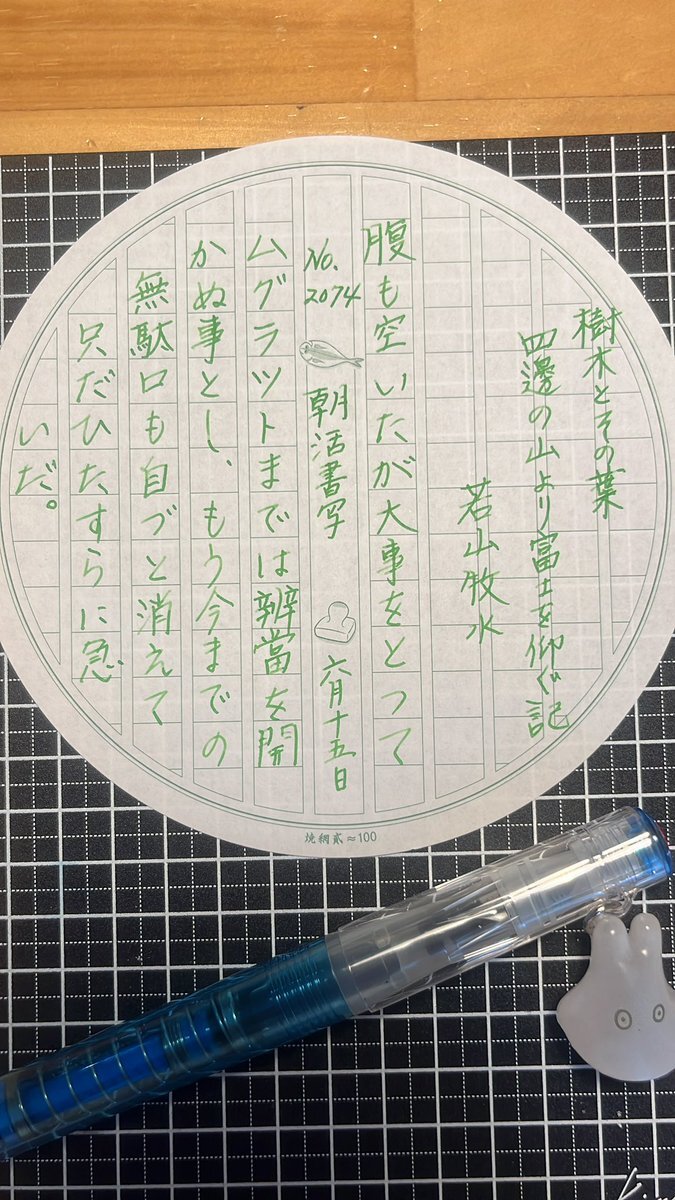 樹木とその葉
四邊の山より富士を仰ぐ記
若山牧水
腹も空いたが大事をとつて
No. 2074 朝活書写 六月十五日
ムグラツトまでは辨當を開
かぬ事とし、もう今までの
無駄口も自づと消えて
只だひたすらに急
いだ。
焼網貳≈100